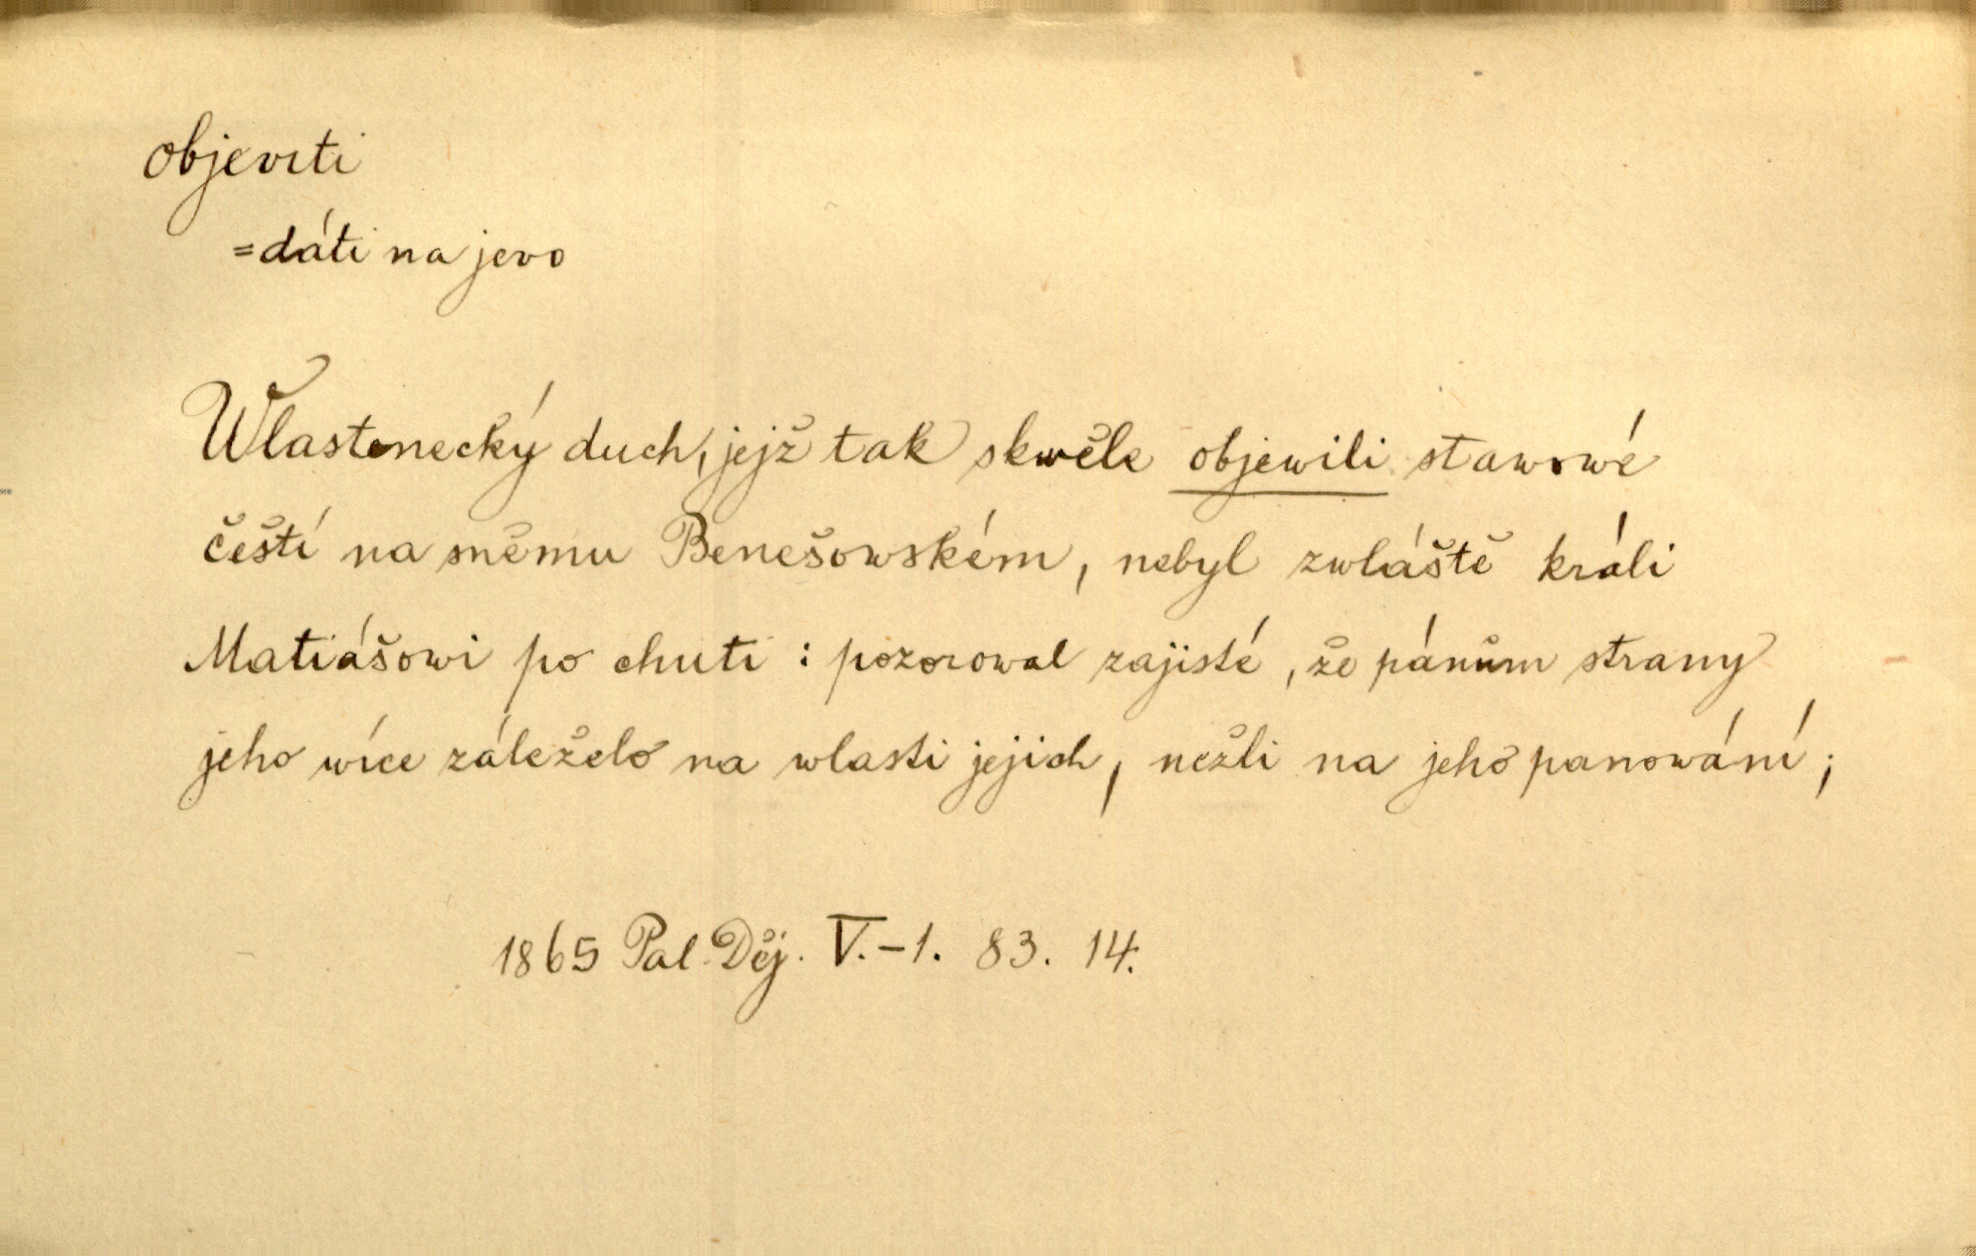 objeviti
=dáti na jevo
Wlastenecký duch, jejž tak skwěle objewili stawowé
čeští na sněmu Benešowském, nebyl zwláště králi
Matiášowi po chuti : pozorowal zajisté, že pánům strany
jeho wíce záleželo na wlasti jejich, nežli na jeho panowání ;
1865 Pal. Děj. V.-1. 83. 14.